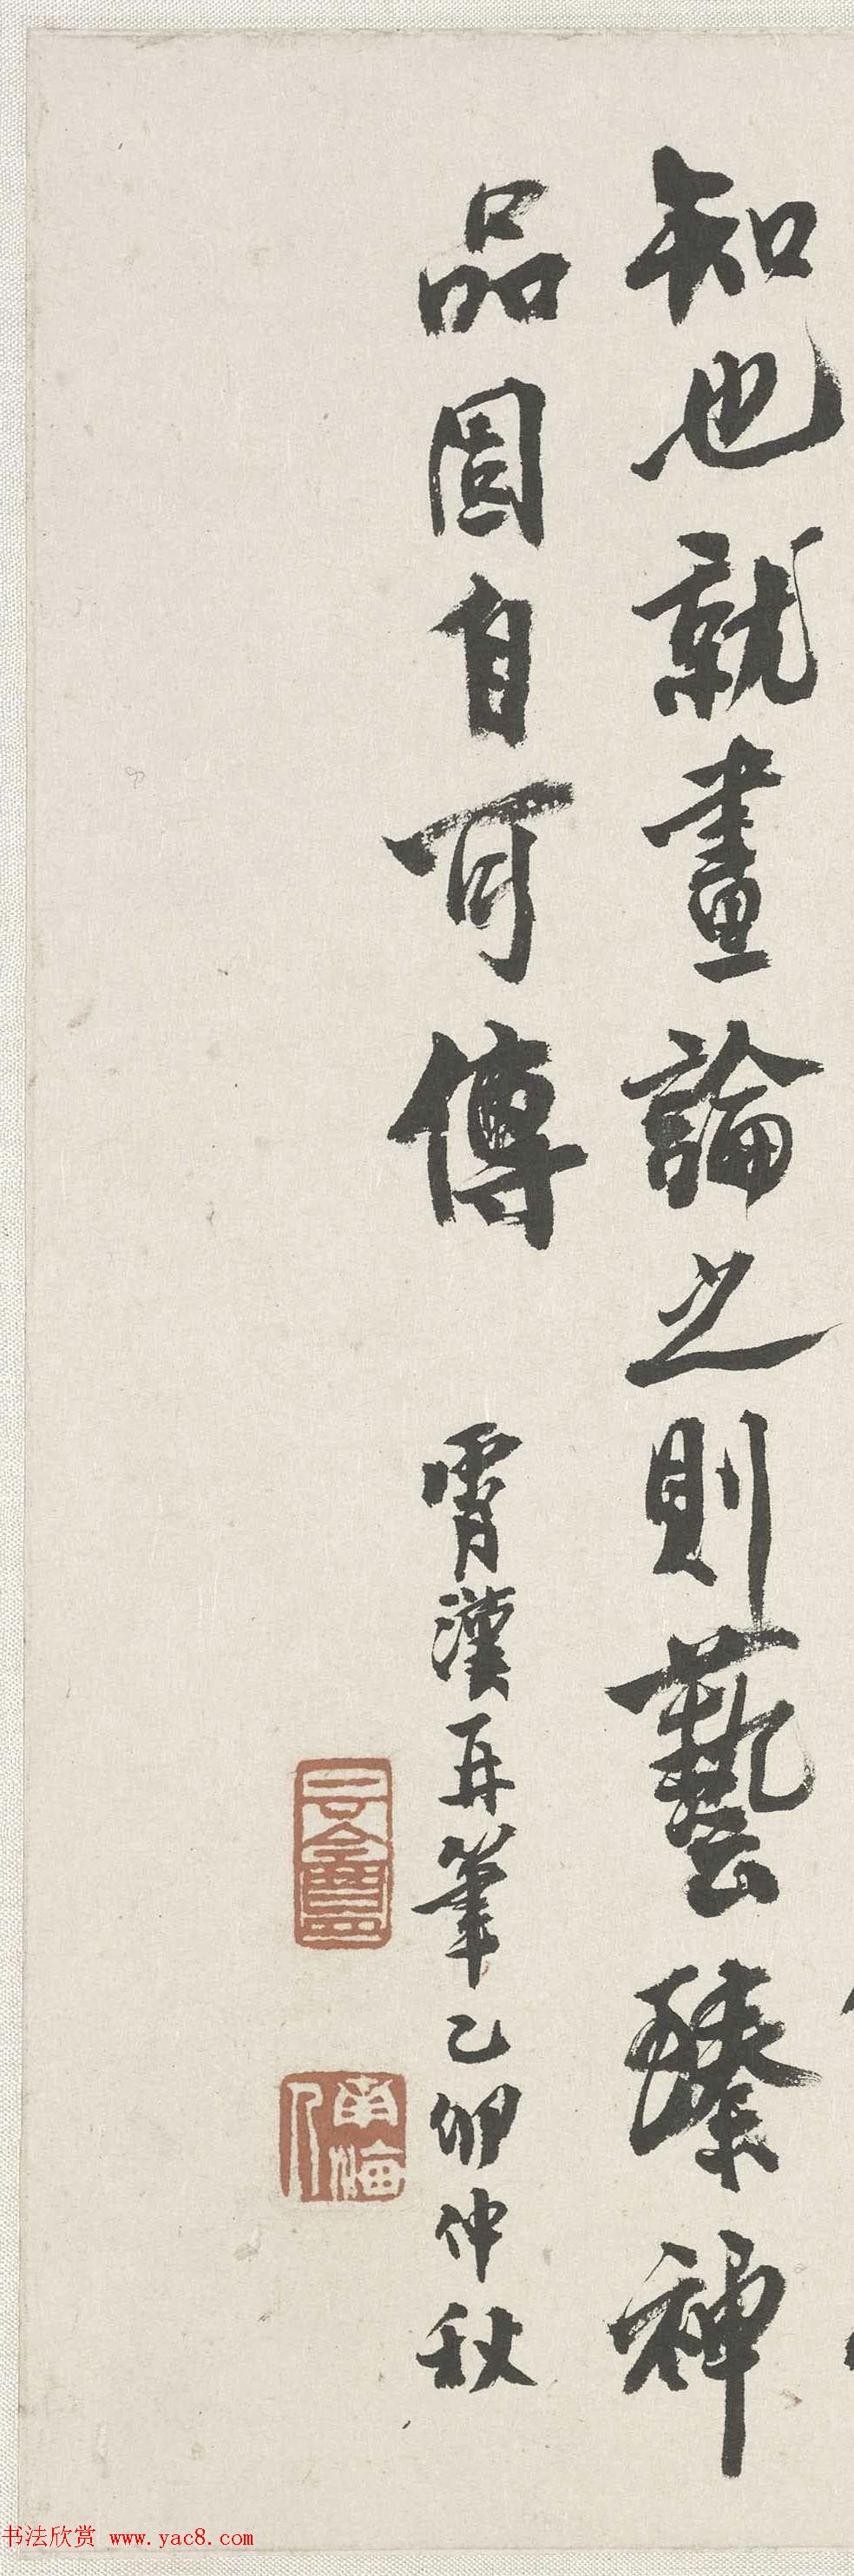 知也就畫論之則藝臻神
品固自可傳
霄漢再筆乙卯仲秋
南海
书法欣赏 www.yac8.com